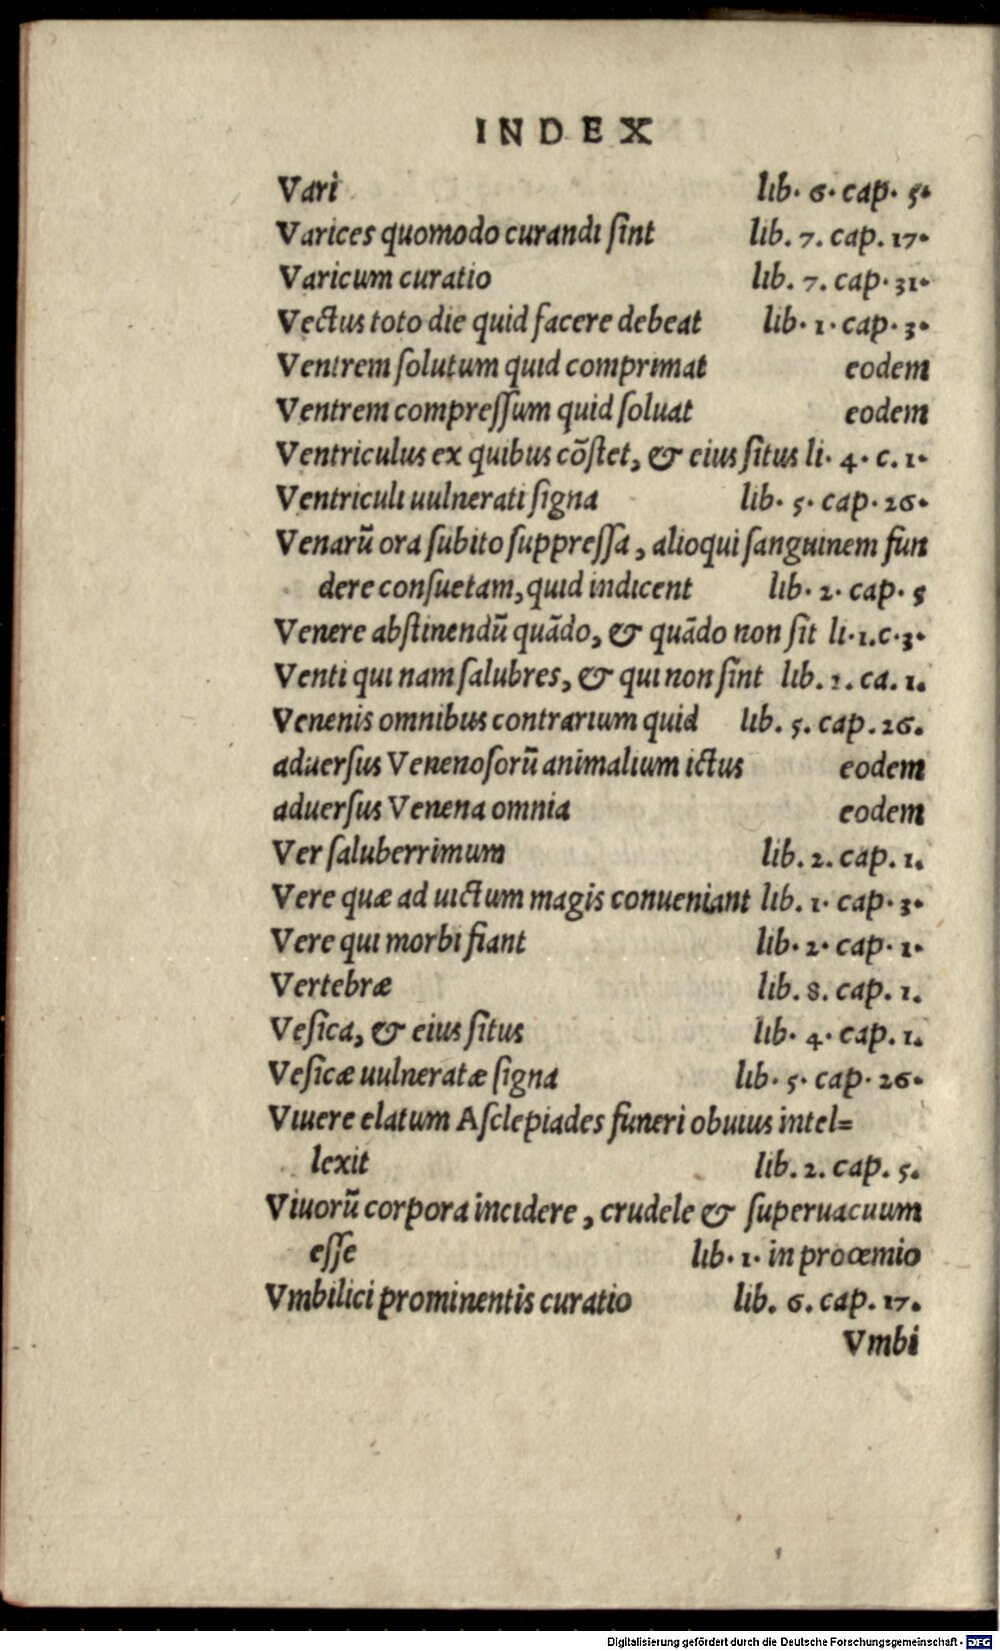 INDEX
Vari lib. 6. cap. 5.
Varices quomodo curandi ſint lib. 7. cap. 17.
Varicum curatio lib. 7. cap. 31.
Vectus toto die quid facere debeat lib. 1. cap. 3.
Ventrem ſolutum quid comprimat eodem
Ventrem compreſſum quid ſoluat eodem
Ventriculus ex quibus cõſtet, & eius ſitus li. 4. c. 1.
Ventriculi uulnerati ſigna lib. 5. cap. 26.
Venarũ ora ſubito ſuppreſſa, alioqui ſanguinem fun
dere conſuetam, quid indicent lib. 2. cap. 5
Venere abſtinendũ quãdo, & quãdo non ſit li. 1. c. 3.
Venti qui nam ſalubres, & qui non ſint lib. 2. ca. 1.
Venenis omnibus contrarium quid lib. 5. cap. 26.
aduerſus Venenoſorũ animalium ictus eodem
aduerſus Venena omnia eodem
Ver ſaluberrimum lib. 2. cap. 1.
Vere quæ ad uictum magis conueniant lib. 1. cap. 3.
Vere qui morbi fiant lib. 2. cap. 1.
Vertebræ lib. 8. cap. 1.
Veſica, & eius ſitus lib. 4. cap. 1.
Veſicæ uulneratæ ſigna lib. 5. cap. 26.
Viuere elatum Aſclepiades funeri obuius intel=
lexit lib. 2. cap. 5.
Viuorũ corpora incidere, crudele & ſuperuacuum
eſſe lib. 1. in proœmio
Vmbilici prominentis curatio lib. 6. cap. 17.
Vmbi
Digitalisierung gefördert durch die Deutsche Forschungsgemeinschaft - DFG